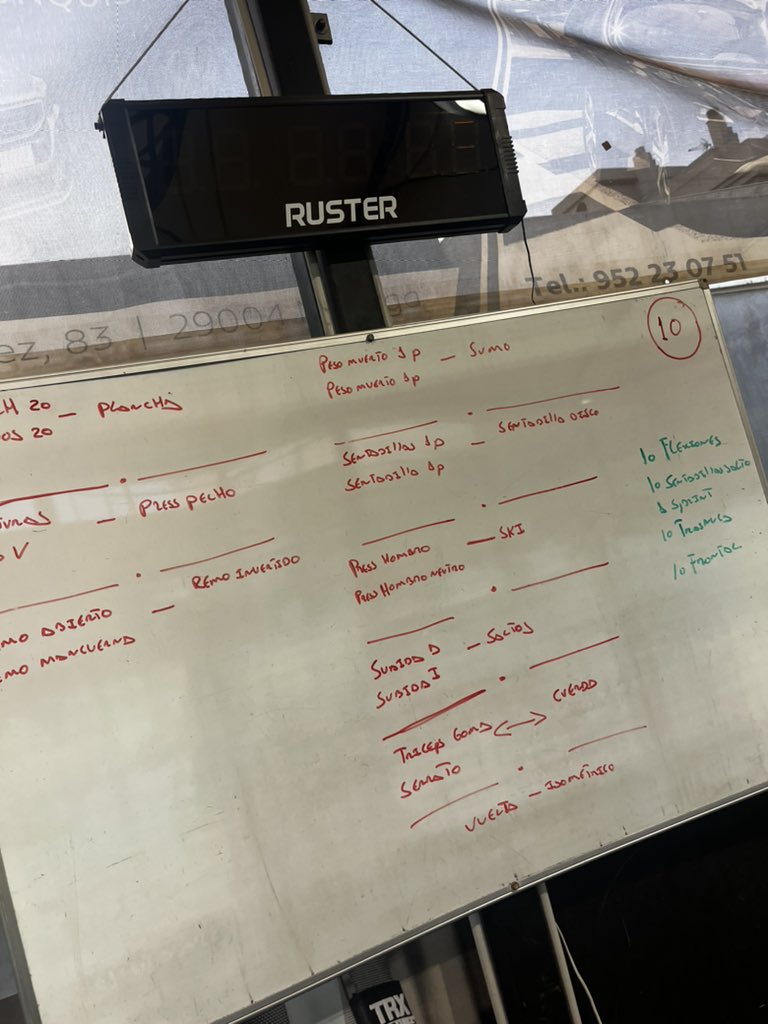 RUSTER
Tel.: 952 23 07 51
ez, 83 | 29004
10
CH 20 - PLANCHA
OS 20
- PRESS PECHO
V
- REMO INVERTIDO
MO ABIERTO
EMO MANCUERNA
PESO MUERTO 1P - SUMO
PESO MUERTO 1P
SENTADILLAS 1P - SENTADILLA DISCO
SENTADILLA 1P
PRESS HOMBRO - SKI
PRESS HOMBRO NEUTRO
SUBIDA D - SALTOS
SUBIDA I
TRICEPS GOMA <-> CUERDA
SERRATO
VUELTA - ISOMÉTRICO
10 FLEXIONES
10 SENTADILLAS SALTO
1 SPRINT
10
10 FRONTAL
TRX